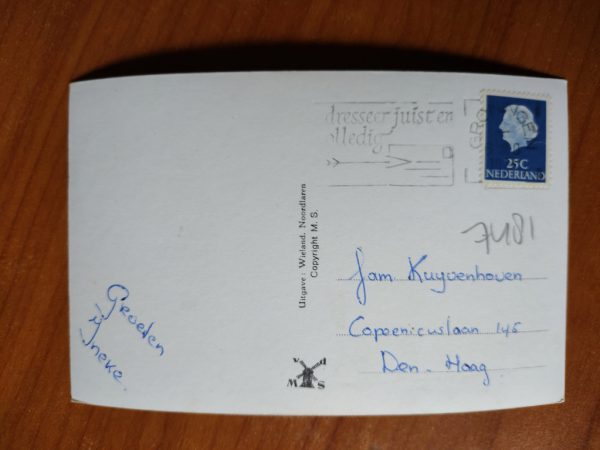 dresseer juist en
olledig
GRO
25C
NEDERLAND
7481
Uitgave: Wieland, Noordlaren
Copyright M. S.
Fam Kuyvenhoven
Copernicuslaan 146
Den. Haag
Groeten
Ineke.
v d
M S